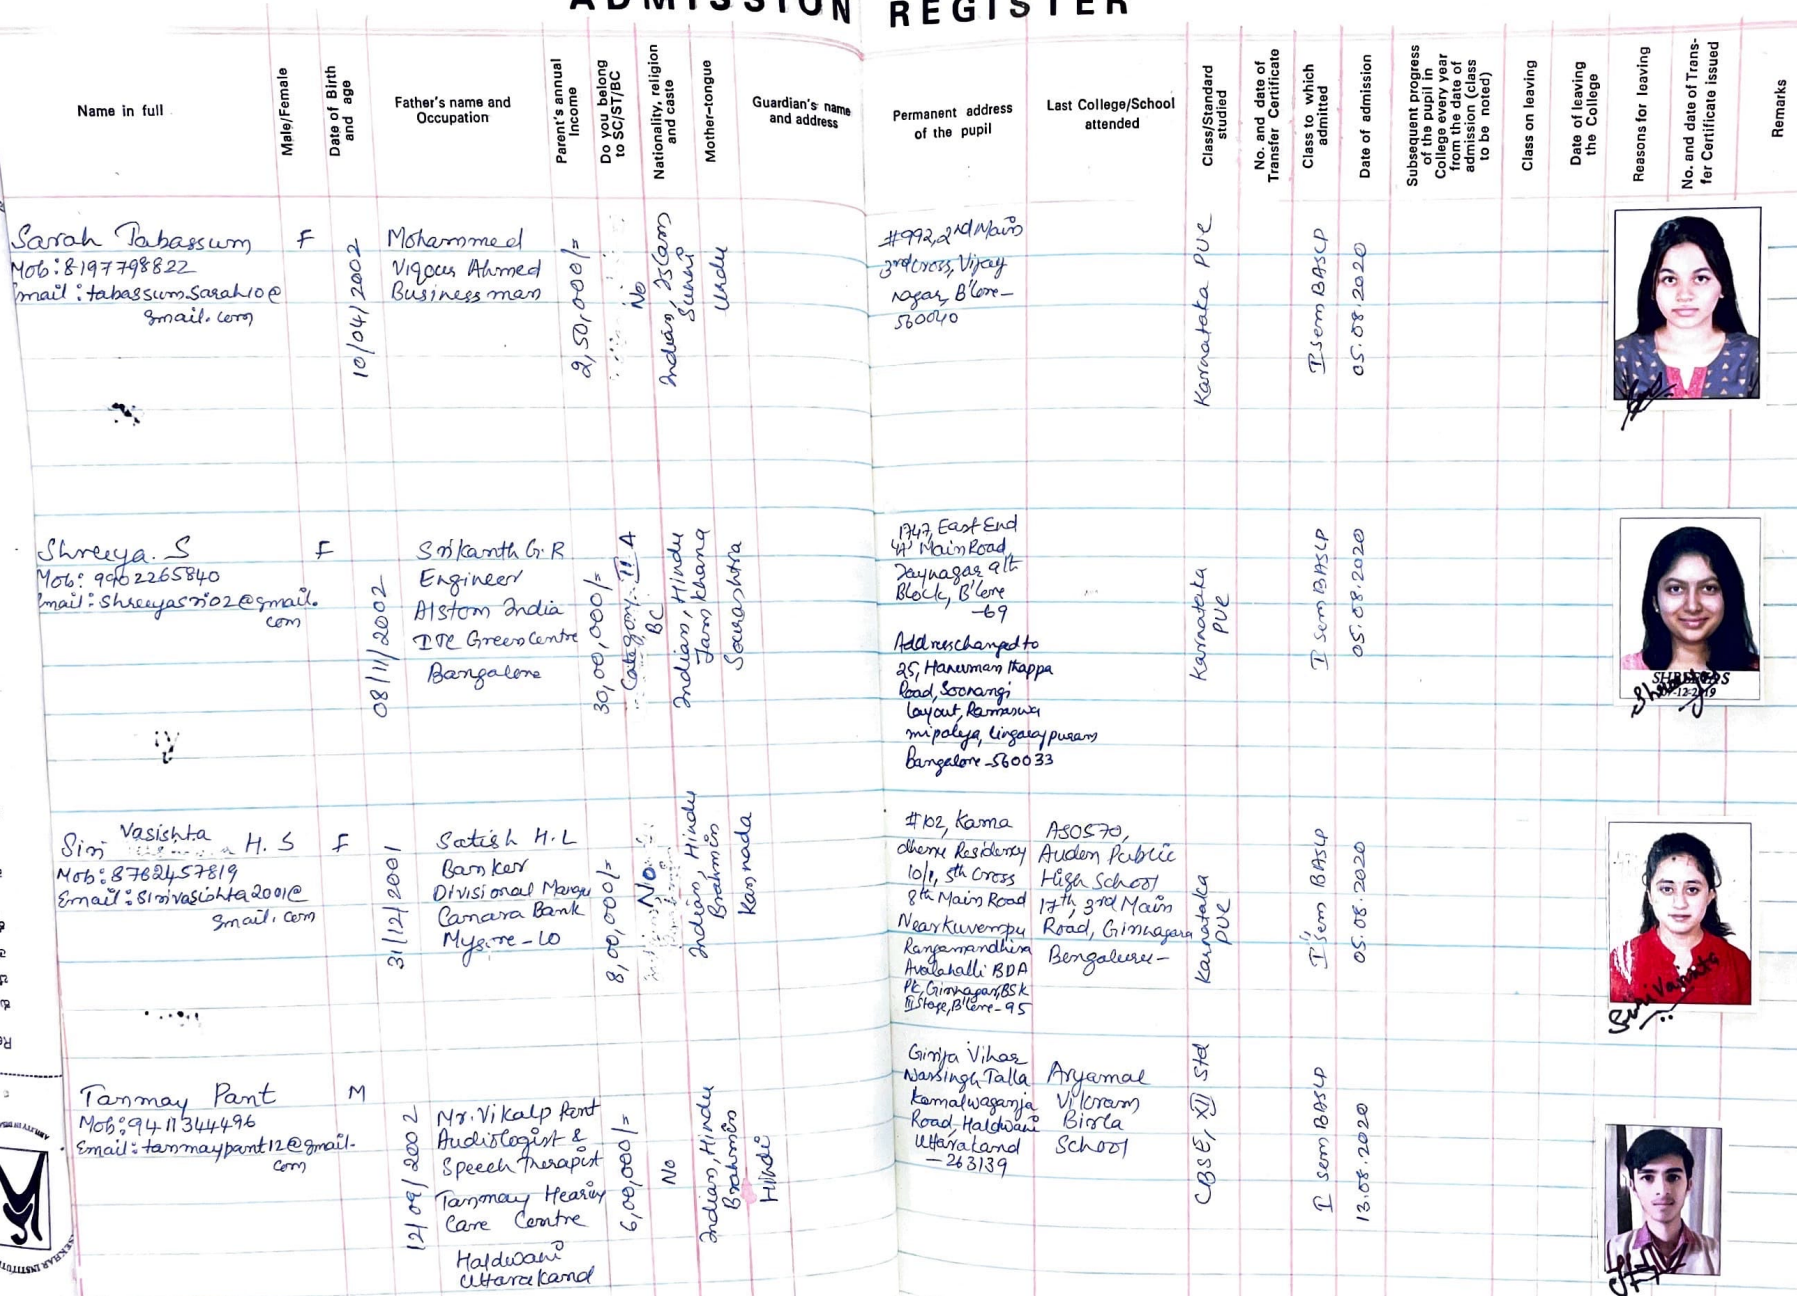 ADMISSION REGISTER
Name in full
Male/Female
Date of Birth and age
Father's name and Occupation
Parent's annual Income
Do you belong to SC/ST/BC
Nationality, religion and caste
Mother-tongue
Guardian's name and address
Permanent address of the pupil
Last College/School attended
Class/Standard studied
No. and date of Transfer Certificate
Class to which admitted
Date of admission
Subsequent progress of the pupil in College every year from the date of admission (class to be noted)
Class on leaving
Date of leaving the College
Reasons for leaving
No. and date of Transfer Certificate issued
Remarks
Sarah Tabassum
Mob: 8197798822
Email: tabassum.sarah10@
gmail.com
F
10/04/2002
Mohammed
Viqous Ahmed
Business man
2,50,000/=
No
Indian, Islam
Sunni
Urdu
#992, 2nd Main
3rd Cross, Vijay
nagar, B'lore-
560040
Karnataka PUE
I sem BASLP
05.08.2020
Shreeya. S
Mob: 9902265840
Email: Shreeyasri02@gmail.
com
F
08/11/2002
Srikanth G.R
Engineer
Alstom India
ITC Green Centre
Bangalore
30,00,000/=
Category II A
BC
Indian, Hindu
Jamkhana
Sourashtra
1747, East End
Main Road
Jaynagar 9th
Block, B'lore
-69
Address changed to
25, Hanumanthappa
Road, Soorangi
layout, Ramaswa
mipalya, Lingarajpuram
Bangalore-560033
Karnataka
PUE
I Sem BASLP
05.08.2020
SHREEYA S
Shreeya
Vasishta
Siri H. S
Mob: 8762457819
Email: Sirivasishta2001@
gmail.com
F
31/12/2001
Satish H.L
Banker
Divisional Manger
Canara Bank
Mysore-10
8,00,000/=
No
Indian, Hindu
Brahmin
Kannada
#102, Kama
dhenu Residency
10/1, 5th Cross
8th Main Road
Near Kuvempu
Rangamandhira
Avalahalli BDA
Pk, Girinagar, BSK
III Stage, B'lore-95
AS0570,
Auden Public
High School
17th, 3rd Main
Road, Girinagara
Bengaluru-
Karnataka
PUE
I sem BASLP
05.08.2020
Siri Vasishta
Tanmay Pant
Mob: 9411344496
Email: tanmaypant12@gmail.
com
M
12/09/2002
Mr. Vikalp Pant
Audiologist &
Speech Therapist
Tanmay Hearing
Care Centre
Haldwani
Uttarakand
6,00,000/=
No
Indian, Hindu
Brahmin
Hindi
Girija Vihar
Narsingh Talla
Kamalwaganja
Road, Haldwani
Uttarakand
-263139
Aryaman
Vikram
Birla
School
CBSE, XII Std
I sem BASLP
13.08.2020